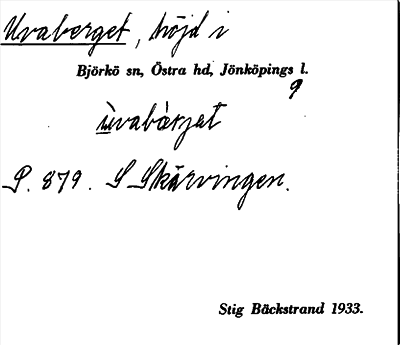 Uvaberget, höjd i
Björkö sn, Östra hd, Jönköpings l.
9
ùvabærjat
P. 879. S Skärvingen.
Stig Bäckstrand 1933.